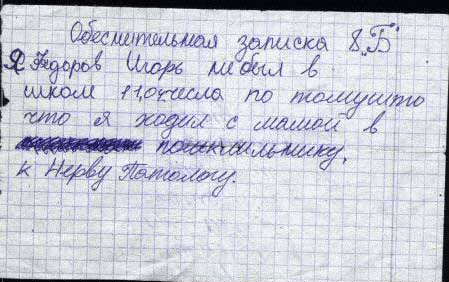 Обеснительная записка 8 "Б"
Я Федоров Игорь небыл в
школи 11,04 числа по томушто
что я ходил с мамой в
к Нерву Патологу.